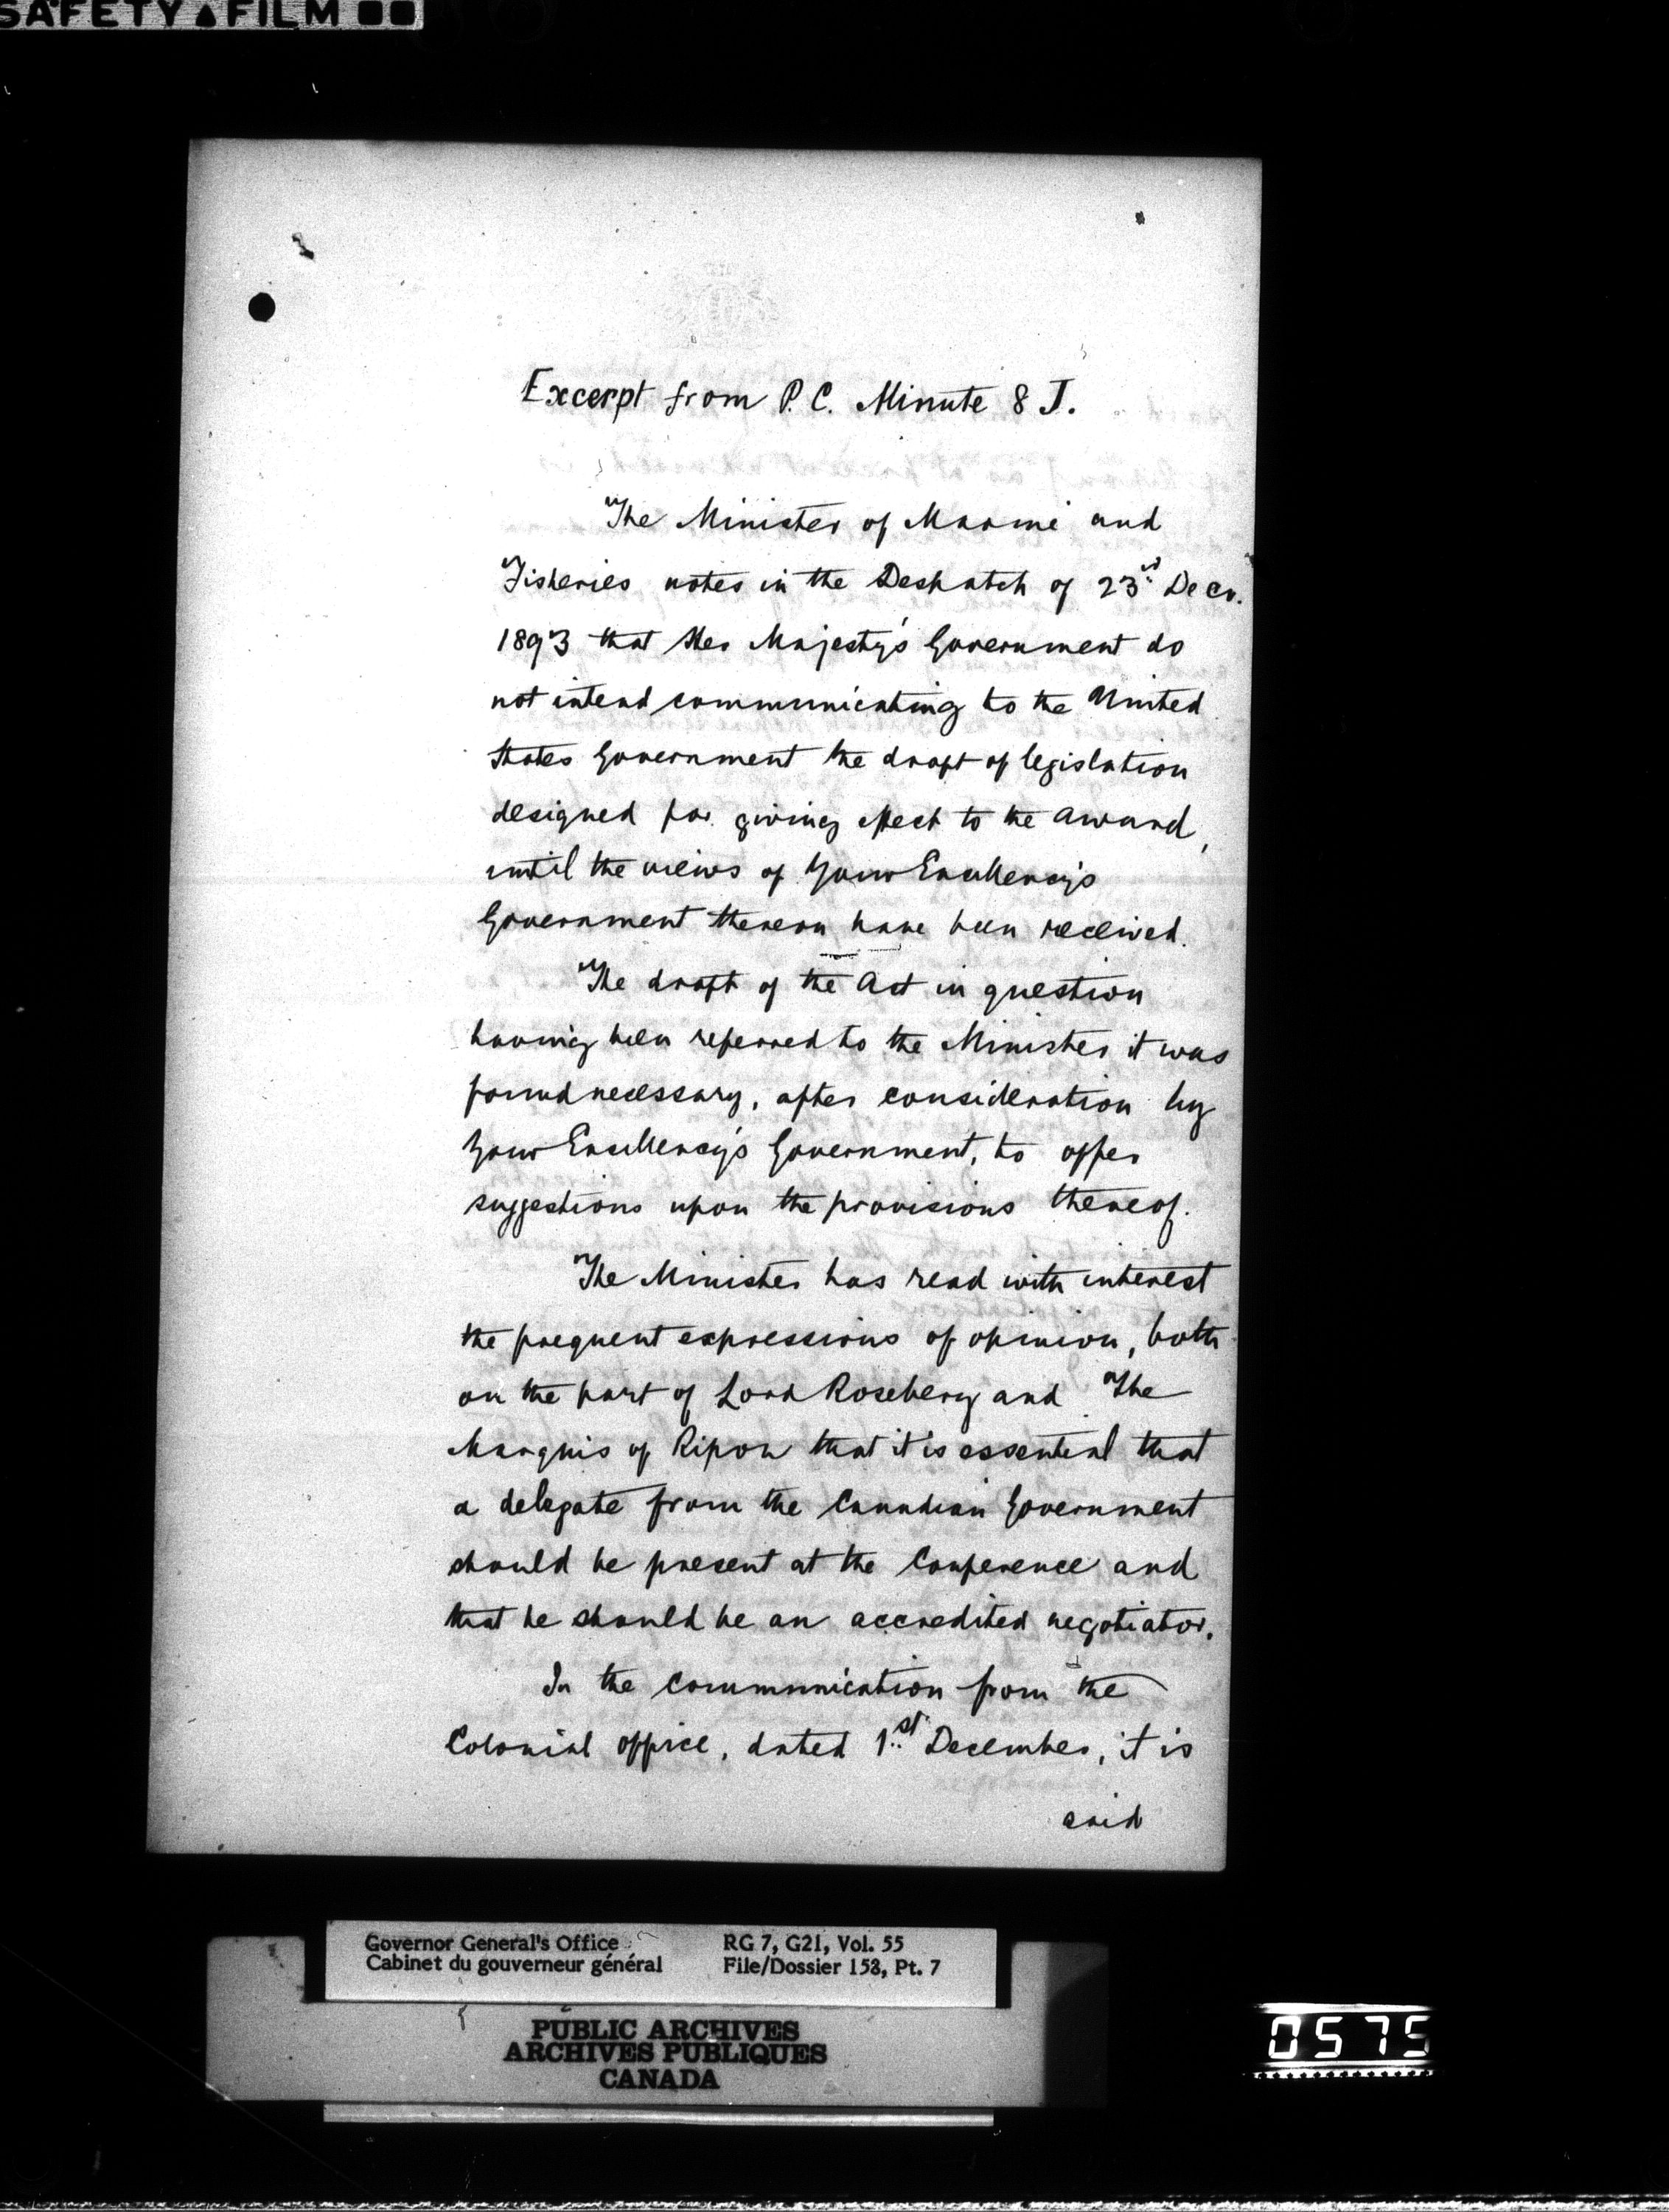 SAFETY FILM
Excerpt from P. C. Minute 8 J.
The Minister of Marine and
Fisheries notes in the Despatch of 23rd Decr.
1893 that Her Majesty's Government do
not intend communicating to the United
States Government the draft of legislation
designed for giving effect to the award,
until the views of Your Excellency's
Government thereon have been received.
The draft of the Act in question
having been referred to the Minister it was
found necessary, after consideration by
Your Excellency's Government, to offer
suggestions upon the provisions thereof.
The Minister has read with interest
the frequent expressions of opinion, both
on the part of Lord Rosebery and The
Marquis of Ripon that it is essential that
a delegate from the Canadian Government
should be present at the Conference and
that he should be an accredited negotiator.
In the communication from the
Colonial Office, dated 1st December, it is
said
Governor General's Office RG 7, G21, Vol. 55
Cabinet du gouverneur général File/Dossier 153, Pt. 7
PUBLIC ARCHIVES
ARCHIVES PUBLIQUES
CANADA
0575